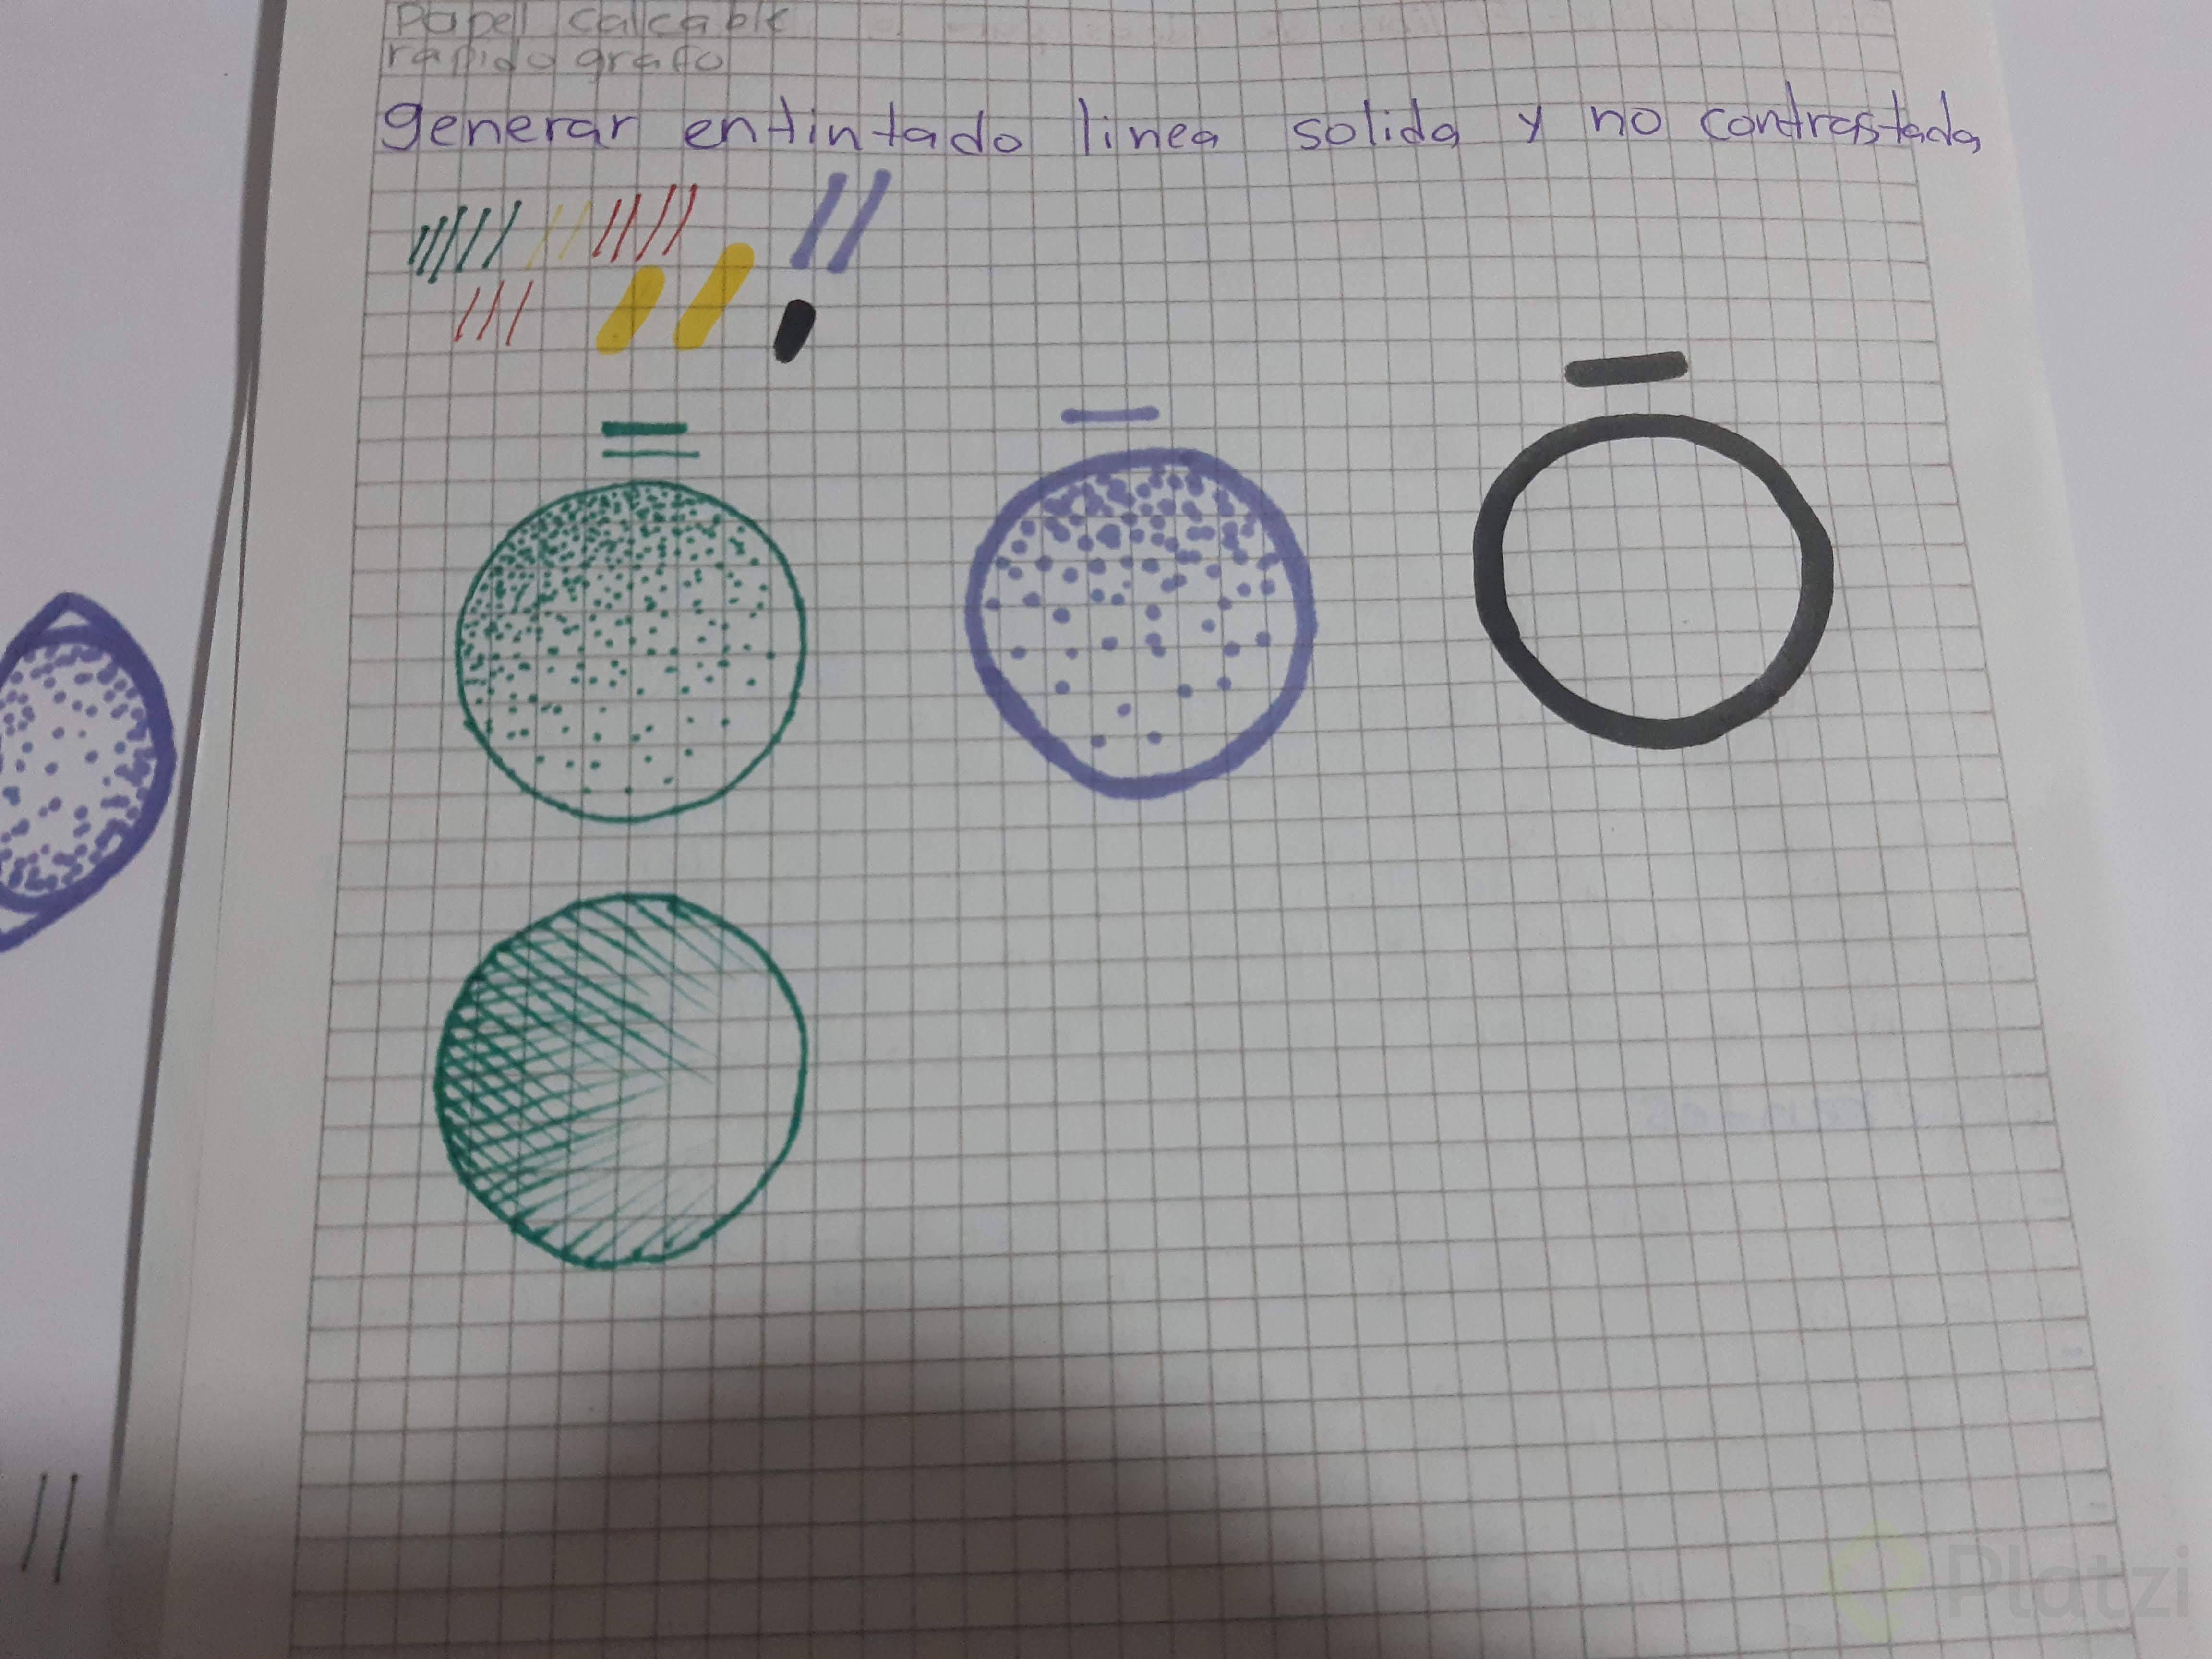 papel calcable
rapidografo
generar entintado linea solida y no contrastada
Platzi